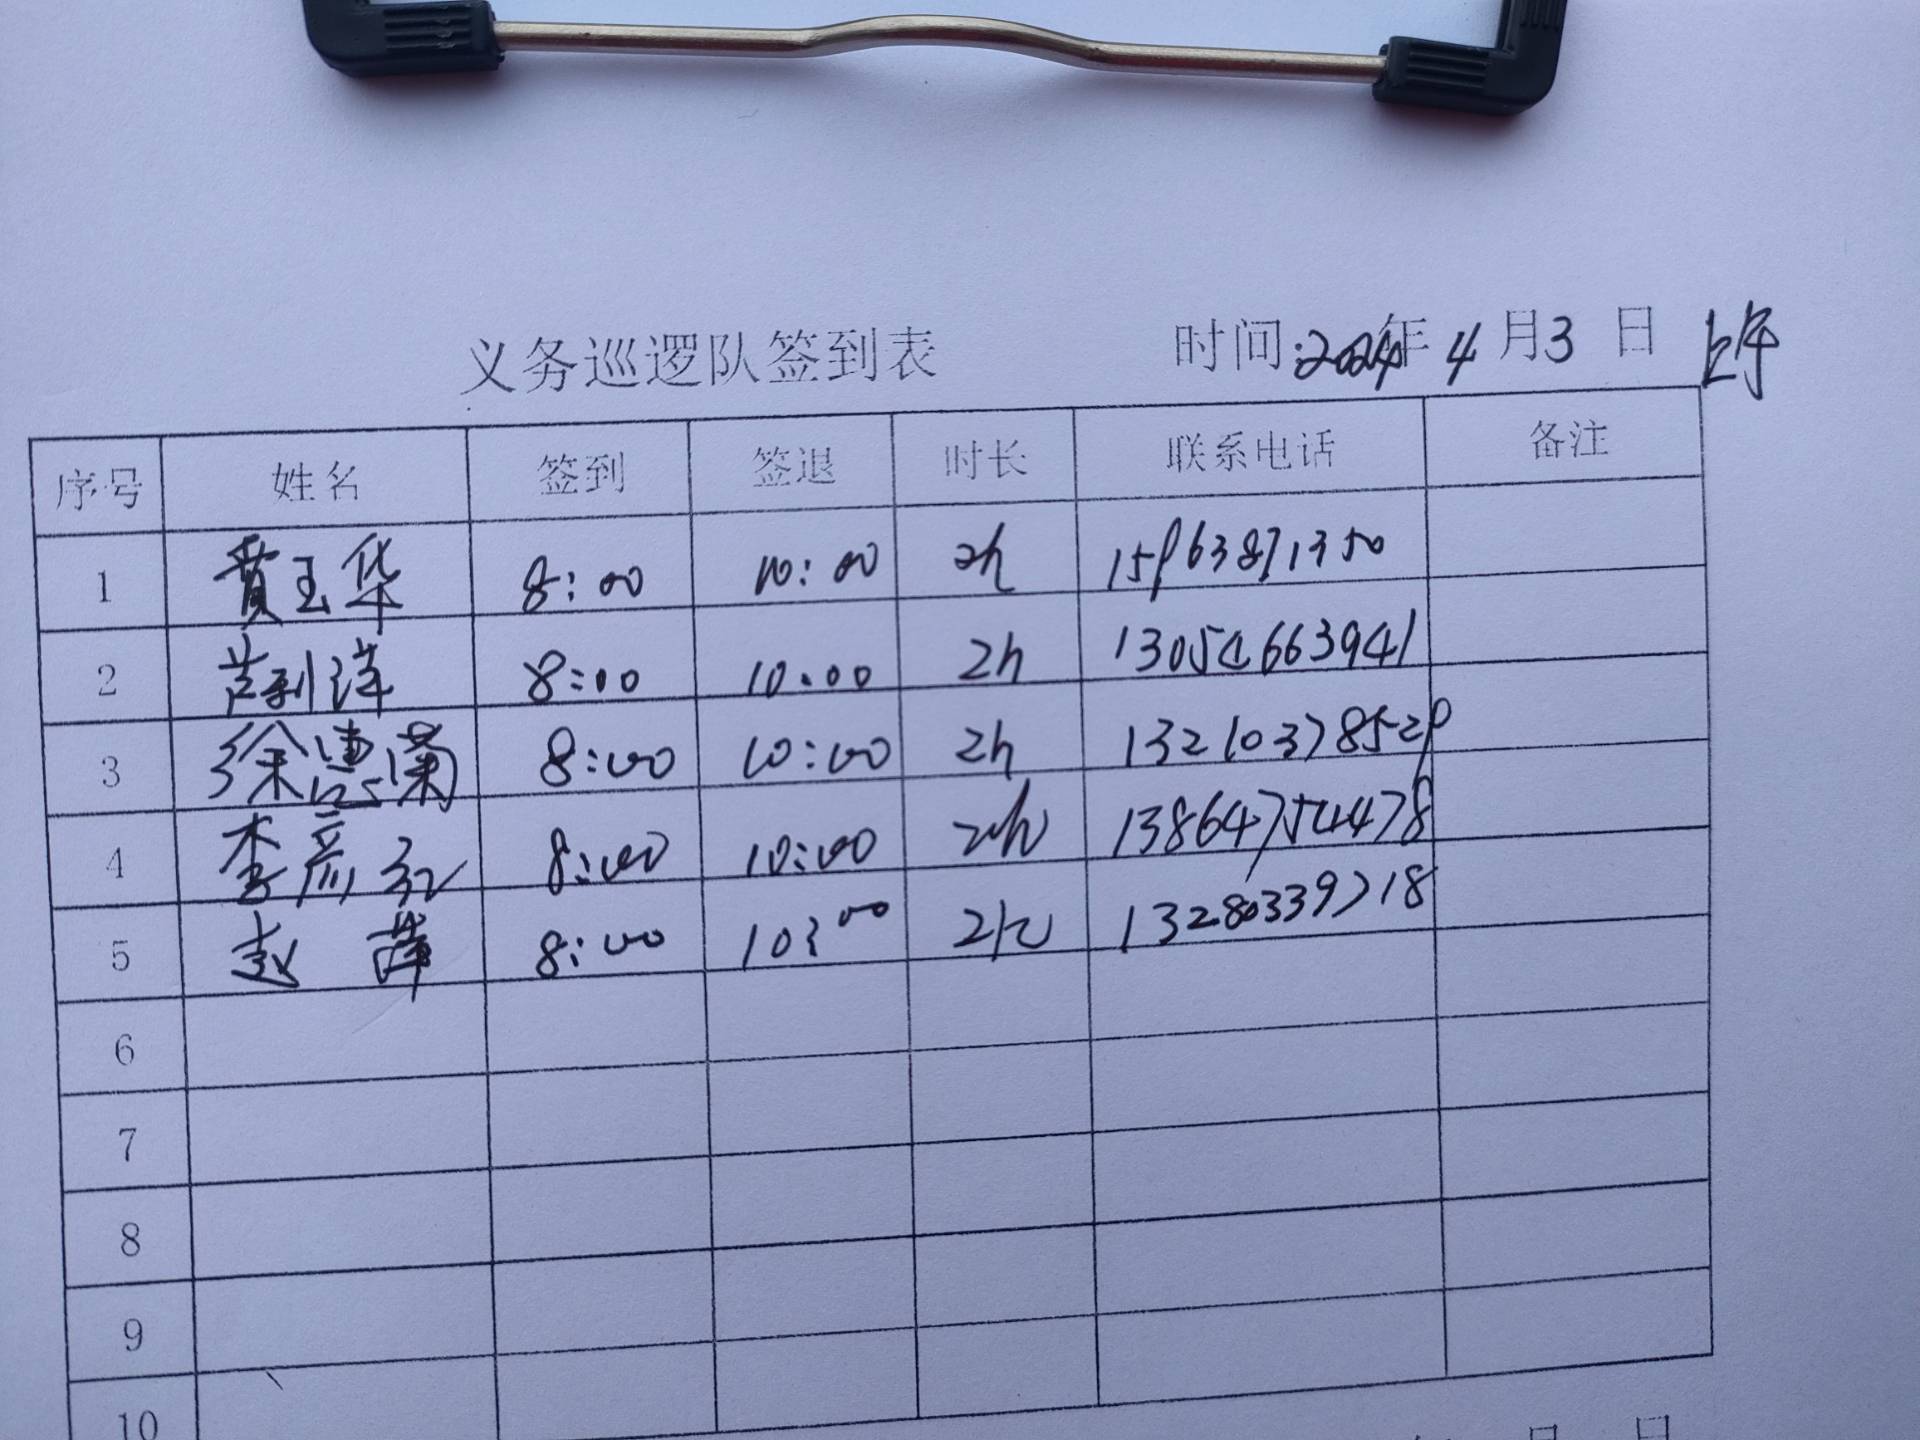 义务巡逻队签到表 时间:2024年4月3日 上午
序号 姓名 签到 签退 时长 联系电话 备注
1 黄玉华 8:00 10:00 2h 15963871350
2 芦利洋 8:00 10:00 2h 13054663941
3 徐惠菊 8:00 10:00 2h 13210378529
4 李彦红 8:00 10:00 2h 13864754478
5 赵萍 8:00 10:00 2h 13280339718
6
7
8
9
10
月 日